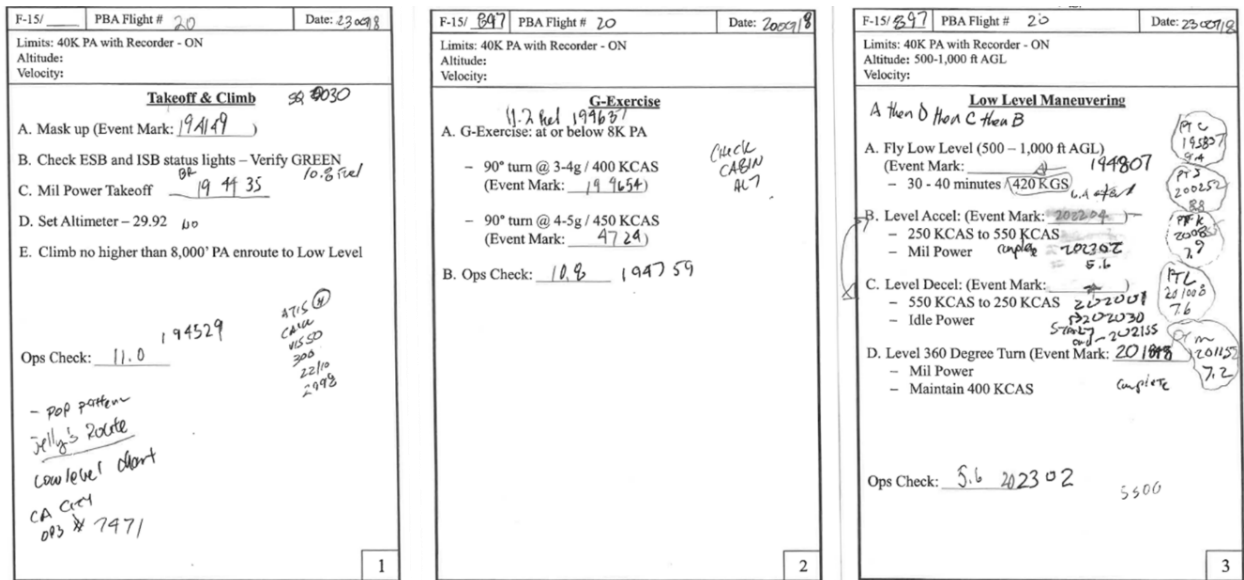 F-15/____ PBA Flight # 20 Date: 23 Oct 18
Limits: 40K PA with Recorder - ON
Altitude:
Velocity:
Takeoff & Climb
A. Mask up (Event Mark: 194149 )
B. Check ESB and ISB status lights – Verify GREEN
BR 10.8 fuel
C. Mil Power Takeoff 19 44 35
D. Set Altimeter – 29.92 NO
E. Climb no higher than 8,000' PA enroute to Low Level
194529
Ops Check: 11.0
ATIS H
VIS 50
300
22/10
2998
- pop pattern
Jelly's Route
Low level chart
CA City
7471
1
F-15/ 897 PBA Flight # 20
Limits: 40K PA with Recorder - ON
Altitude:
Velocity:
G-Exercise
11.2 fuel 194637
A. G-Exercise: at or below 8K PA
CHECK
CABIN
ALT
– 90° turn @ 3-4g / 400 KCAS
(Event Mark: 194654)
– 90° turn @ 4-5g / 450 KCAS
(Event Mark: 4724)
B. Ops Check: 10.8 194759
2
F-15/ 897 PBA Flight # 20 Date: 23 Oct 18
Limits: 40K PA with Recorder - ON
Altitude: 500-1,000 ft AGL
Velocity:
Low Level Maneuvering
A then D then C then B
A. Fly Low Level (500 – 1,000 ft AGL)
(Event Mark: 194807
– 30 - 40 minutes / 420 KGS
PT C
195807
9.4
PT J
200252
8.8
PT K
7.9
PT L
201008
7.6
PT M
201152
7.2
B. Level Accel: (Event Mark: 202204 )
– 250 KCAS to 550 KCAS
– Mil Power complete 202302
5.6
C. Level Decel: (Event Mark: )
– 550 KCAS to 250 KCAS 202001
– Idle Power 202030
end - 202155
D. Level 360 Degree Turn (Event Mark: 201848 )
– Mil Power
– Maintain 400 KCAS complete
Ops Check: 5.6 202302
5500
3